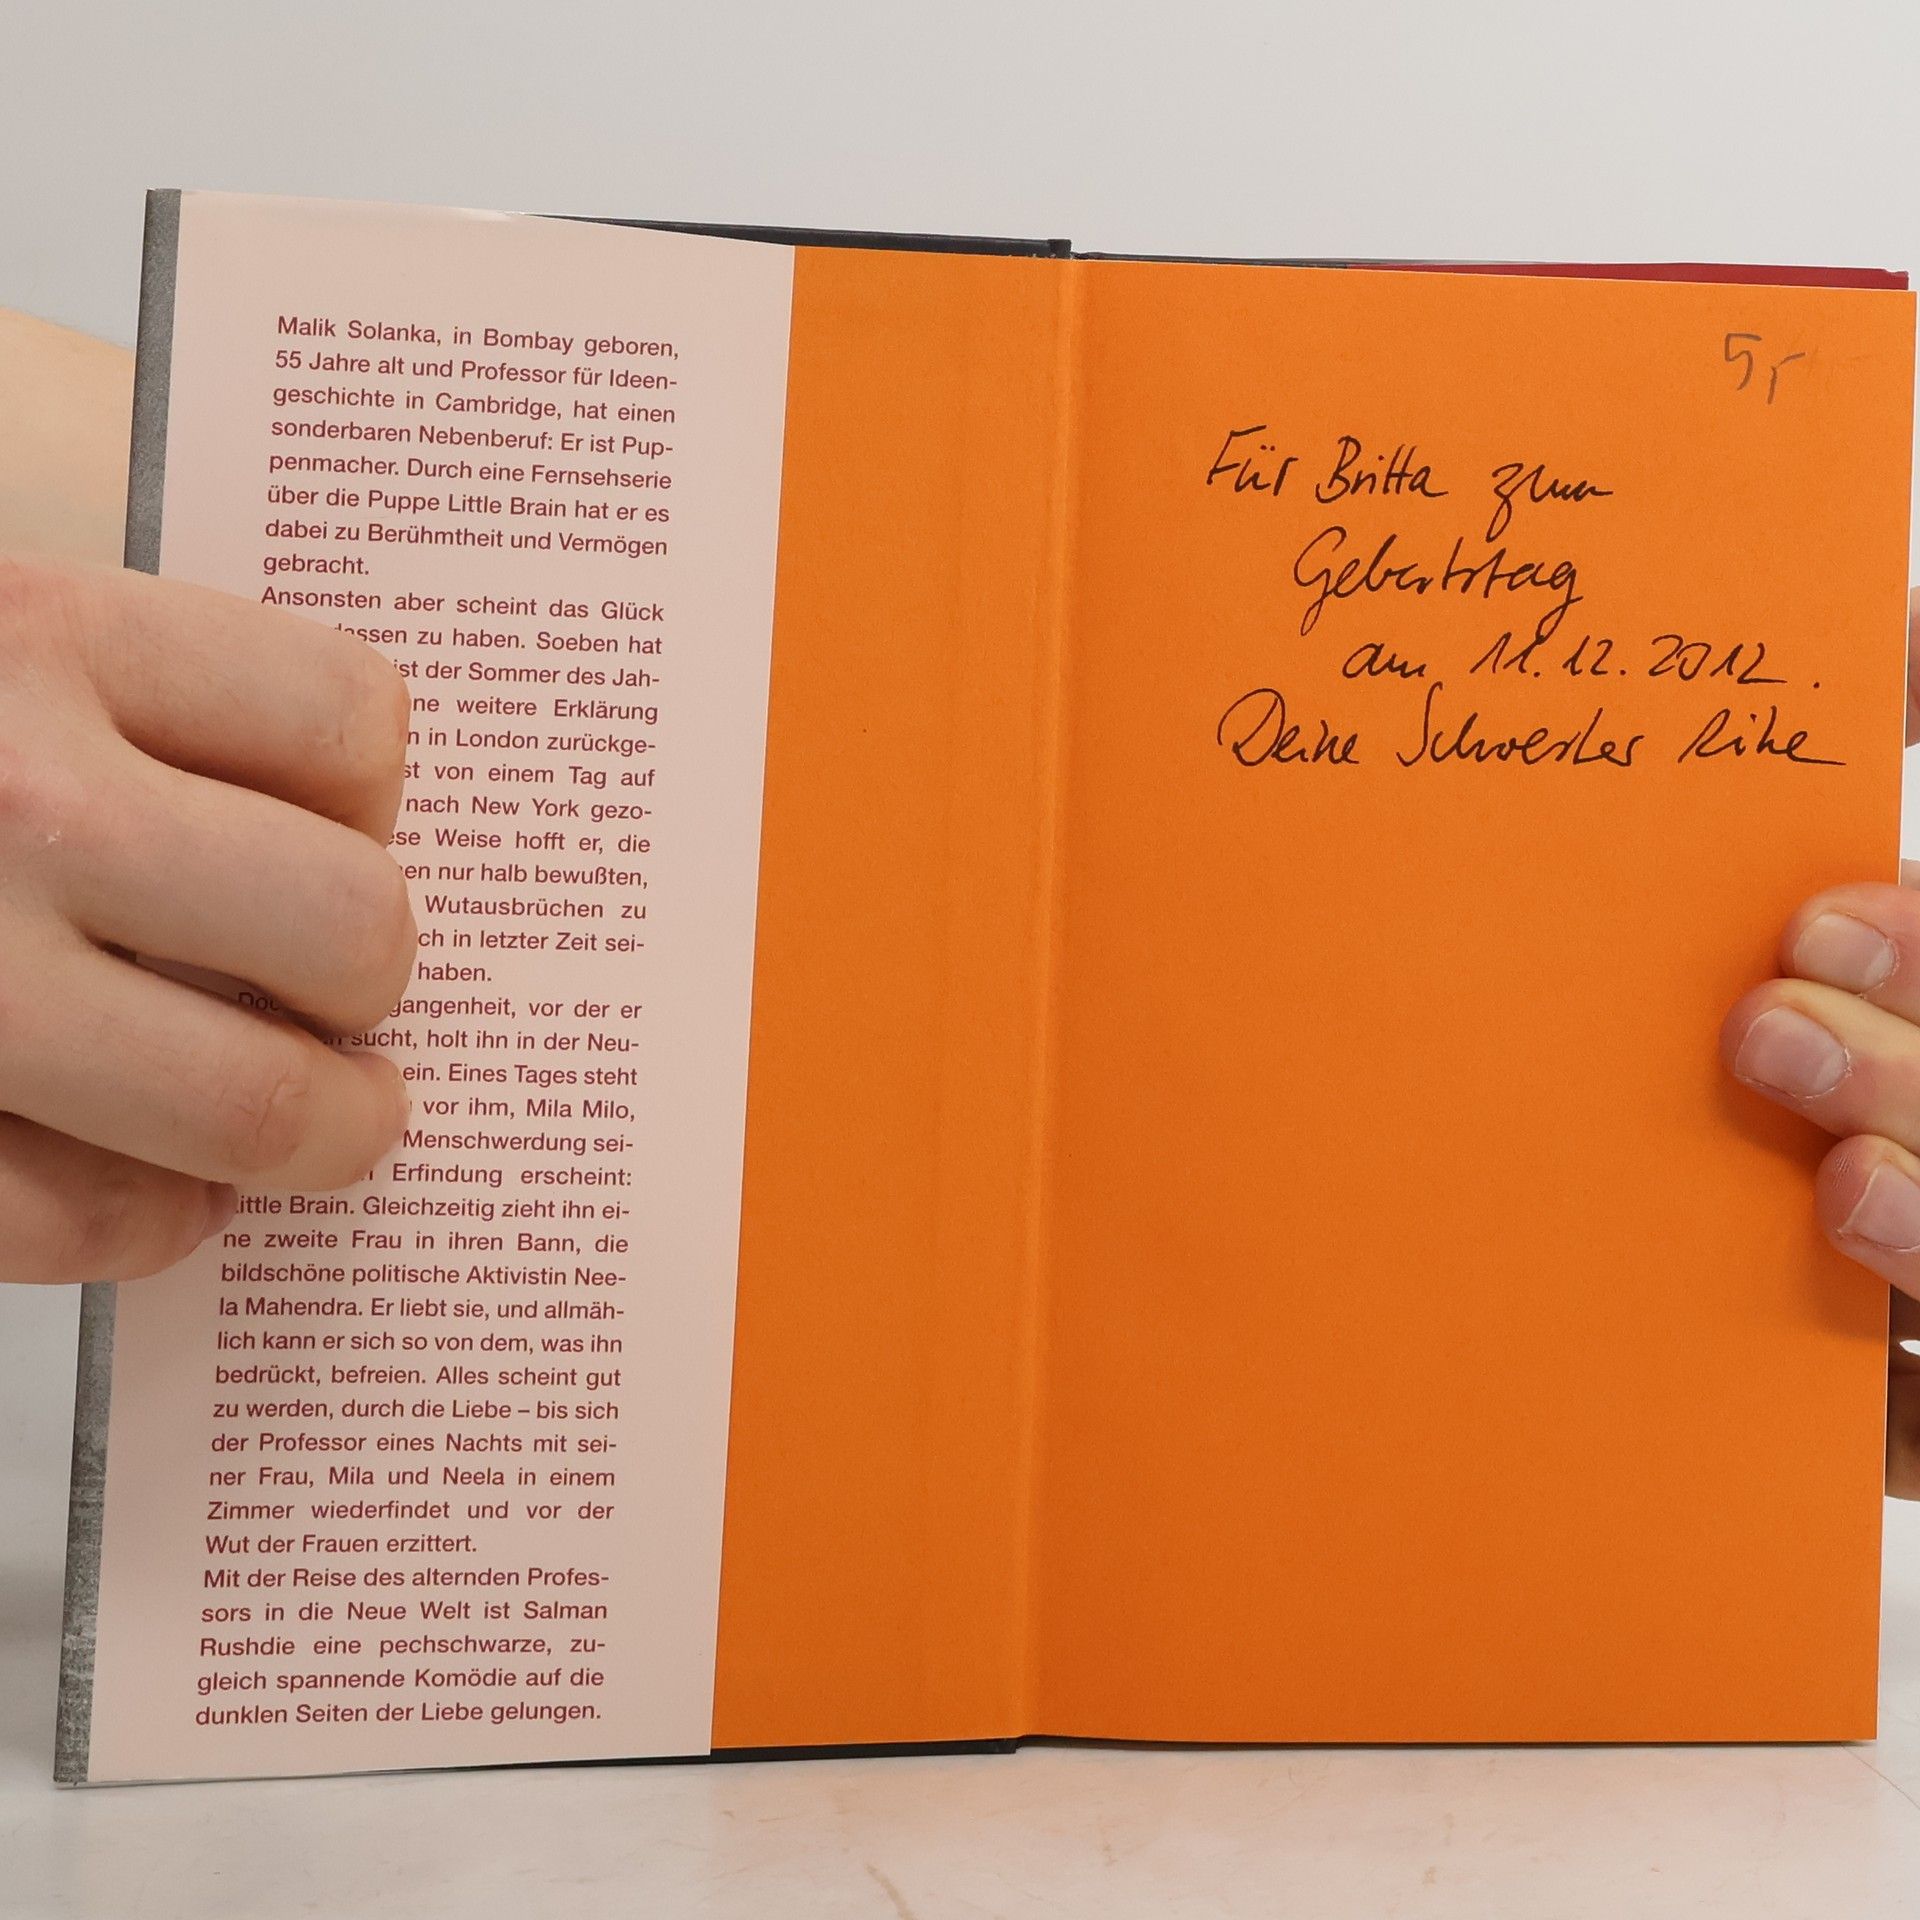 Malik Solanka, in Bombay geboren,
55 Jahre alt und Professor für Ideen-
geschichte in Cambridge, hat einen
sonderbaren Nebenberuf: Er ist Pup-
penmacher. Durch eine Fernsehserie
über die Puppe Little Brain hat er es
dabei zu Berühmtheit und Vermögen
gebracht.
Ansonsten aber scheint das Glück
zu haben. Soeben hat
ist der Sommer des Jah-
weitere Erklärung
in London zurückge-
von einem Tag auf
nach New York gezo-
Weise hofft er, die
nur halb bewußten,
Wutausbrüchen zu
in letzter Zeit sei-
haben.
vor der er
sucht, holt ihn in der Neu-
ein. Eines Tages steht
vor ihm, Mila Milo,
Menschwerdung sei-
Erfindung erscheint:
Little Brain. Gleichzeitig zieht ihn ei-
ne zweite Frau in ihren Bann, die
bildschöne politische Aktivistin Nee-
la Mahendra. Er liebt sie, und allmäh-
lich kann er sich so von dem, was ihn
bedrückt, befreien. Alles scheint gut
zu werden, durch die Liebe – bis sich
der Professor eines Nachts mit sei-
ner Frau, Mila und Neela in einem
Zimmer wiederfindet und vor der
Wut der Frauen erzittert.
Mit der Reise des alternden Profes-
sors in die Neue Welt ist Salman
Rushdie eine pechschwarze, zu-
gleich spannende Komödie auf die
dunklen Seiten der Liebe gelungen.
5,-
Für Britta zum
Geburtstag
am 11.12.2012.
Deine Schwester